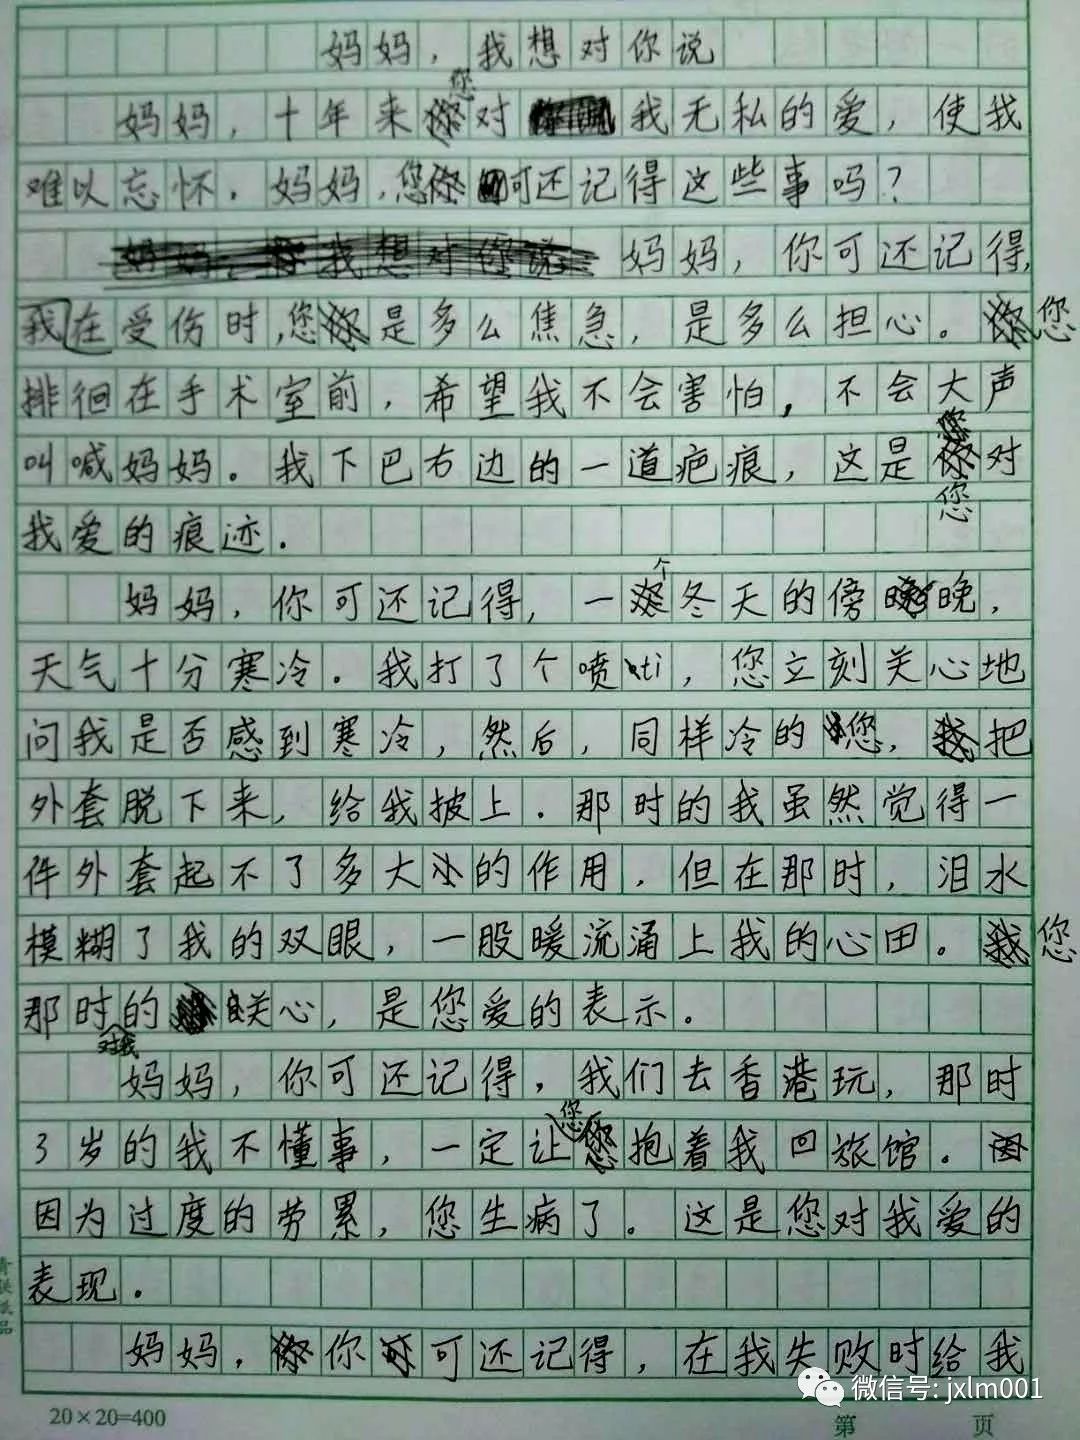 妈妈，我想对你说
妈妈，十年来您对我无私的爱，使我
难以忘怀。妈妈，您可还记得这些事吗？
妈妈，你可还记得，
我在受伤时，您是多么焦急，是多么担心。您
排徊在手术室前，希望我不会害怕，不会大声
叫喊妈妈。我下巴右边的一道疤痕，这是您对
我爱的痕迹。
妈妈，你可还记得，一个冬天的傍晚，
天气十分寒冷。我打了个喷ti，您立刻关心地
问我是否感到寒冷，然后，同样冷的您，把
外套脱下来，给我披上。那时的我虽然觉得一
件外套起不了多大的作用，但在那时，泪水
模糊了我的双眼，一股暖流涌上我的心田。您
那时对我的关心，是您爱的表示。
妈妈，你可还记得，我们去香港玩，那时
3岁的我不懂事，一定让您抱着我回旅馆。
因为过度的劳累，您生病了。这是您对我爱的
表现。
妈妈，你可还记得，在我失败时给我
微信号: jxlm001
20×20=400
第 页